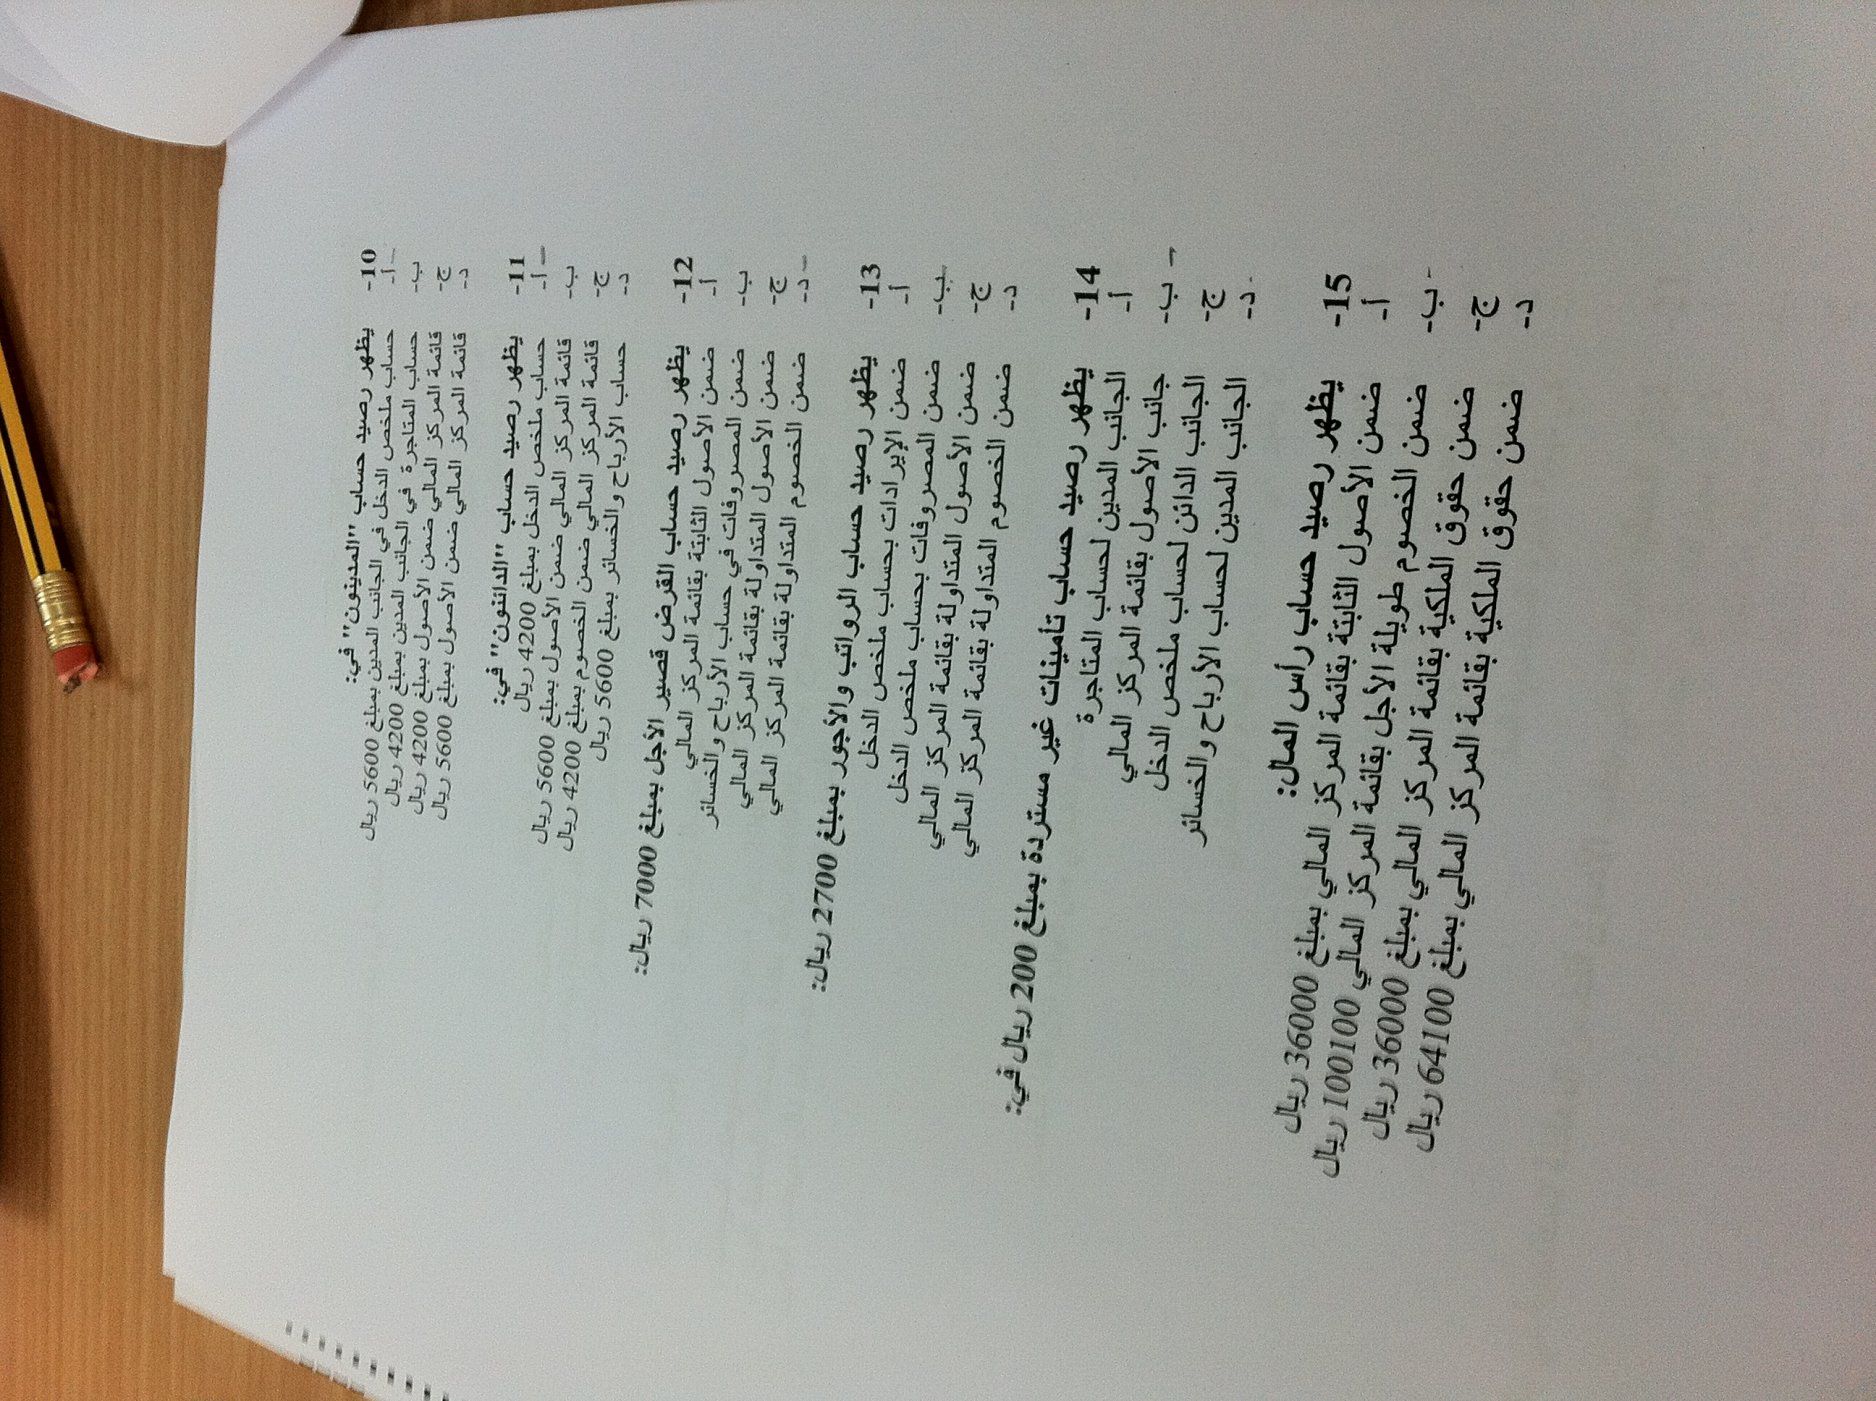 10- يظهر رصيد حساب "المدينون" في:
أ- حساب ملخص الدخل في الجانب المدين بمبلغ 5600 ريال
ب- حساب المتاجرة في الجانب المدين بمبلغ 4200 ريال
ج- قائمة المركز المالي ضمن الأصول بمبلغ 4200 ريال
د- قائمة المركز المالي ضمن الأصول بمبلغ 5600 ريال
11- يظهر رصيد حساب "الدائنون" في:
أ- حساب ملخص الدخل بمبلغ 4200 ريال
ب- قائمة المركز المالي ضمن الأصول بمبلغ 5600 ريال
ج- قائمة المركز المالي ضمن الخصوم بمبلغ 4200 ريال
د- حساب الأرباح والخسائر بمبلغ 5600 ريال
12- يظهر رصيد حساب القرض قصير الأجل بمبلغ 7000 ريال:
أ- ضمن الأصول الثابتة بقائمة المركز المالي
ب- ضمن المصروفات في حساب الأرباح والخسائر
ج- ضمن الأصول المتداولة بقائمة المركز المالي
د- ضمن الخصوم المتداولة بقائمة المركز المالي
13- يظهر رصيد حساب الرواتب والأجور بمبلغ 2700 ريال:
أ- ضمن الإيرادات بحساب ملخص الدخل
ب- ضمن المصروفات بحساب ملخص الدخل
ج- ضمن الأصول المتداولة بقائمة المركز المالي
د- ضمن الخصوم المتداولة بقائمة المركز المالي
14- يظهر رصيد حساب تأمينات غير مستردة بمبلغ 200 ريال في:
أ- الجانب المدين لحساب المتاجرة
ب- جانب الأصول بقائمة المركز المالي
ج- الجانب الدائن لحساب ملخص الدخل
د- الجانب المدين لحساب الأرباح والخسائر
15- يظهر رصيد حساب رأس المال:
أ- ضمن الأصول الثابتة بقائمة المركز المالي بمبلغ 36000 ريال
ب- ضمن الخصوم طويلة الأجل بقائمة المركز المالي 100100 ريال
ج- ضمن حقوق الملكية بقائمة المركز المالي بمبلغ 36000 ريال
د- ضمن حقوق الملكية بقائمة المركز المالي بمبلغ 64100 ريال